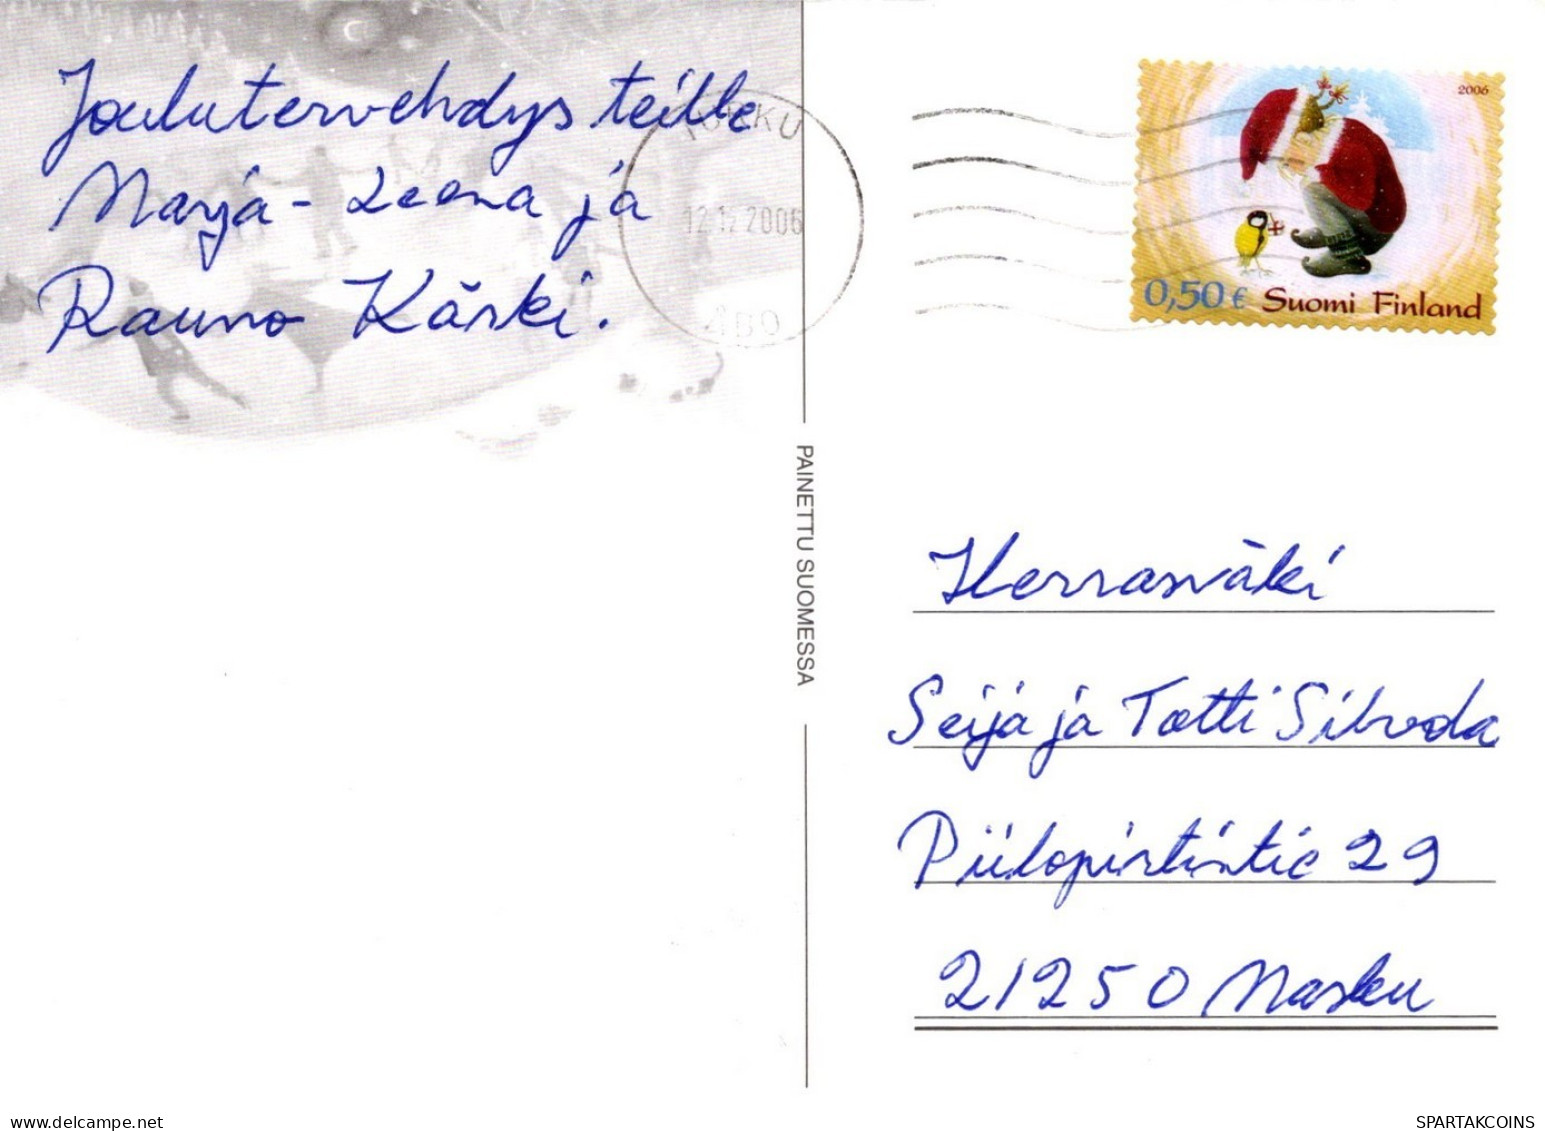 Joulutervehdys teille
Marja-Leena ja
Rauno Kärki.
TURKU
12.12.2006
ÅBO
2006
0,50 € Suomi Finland
PAINETTU SUOMESSA
Herrasväki
Seija ja Totti
Piilopirtintie 29
21250 Masku
delcampe.net
SPARTAKCOINS